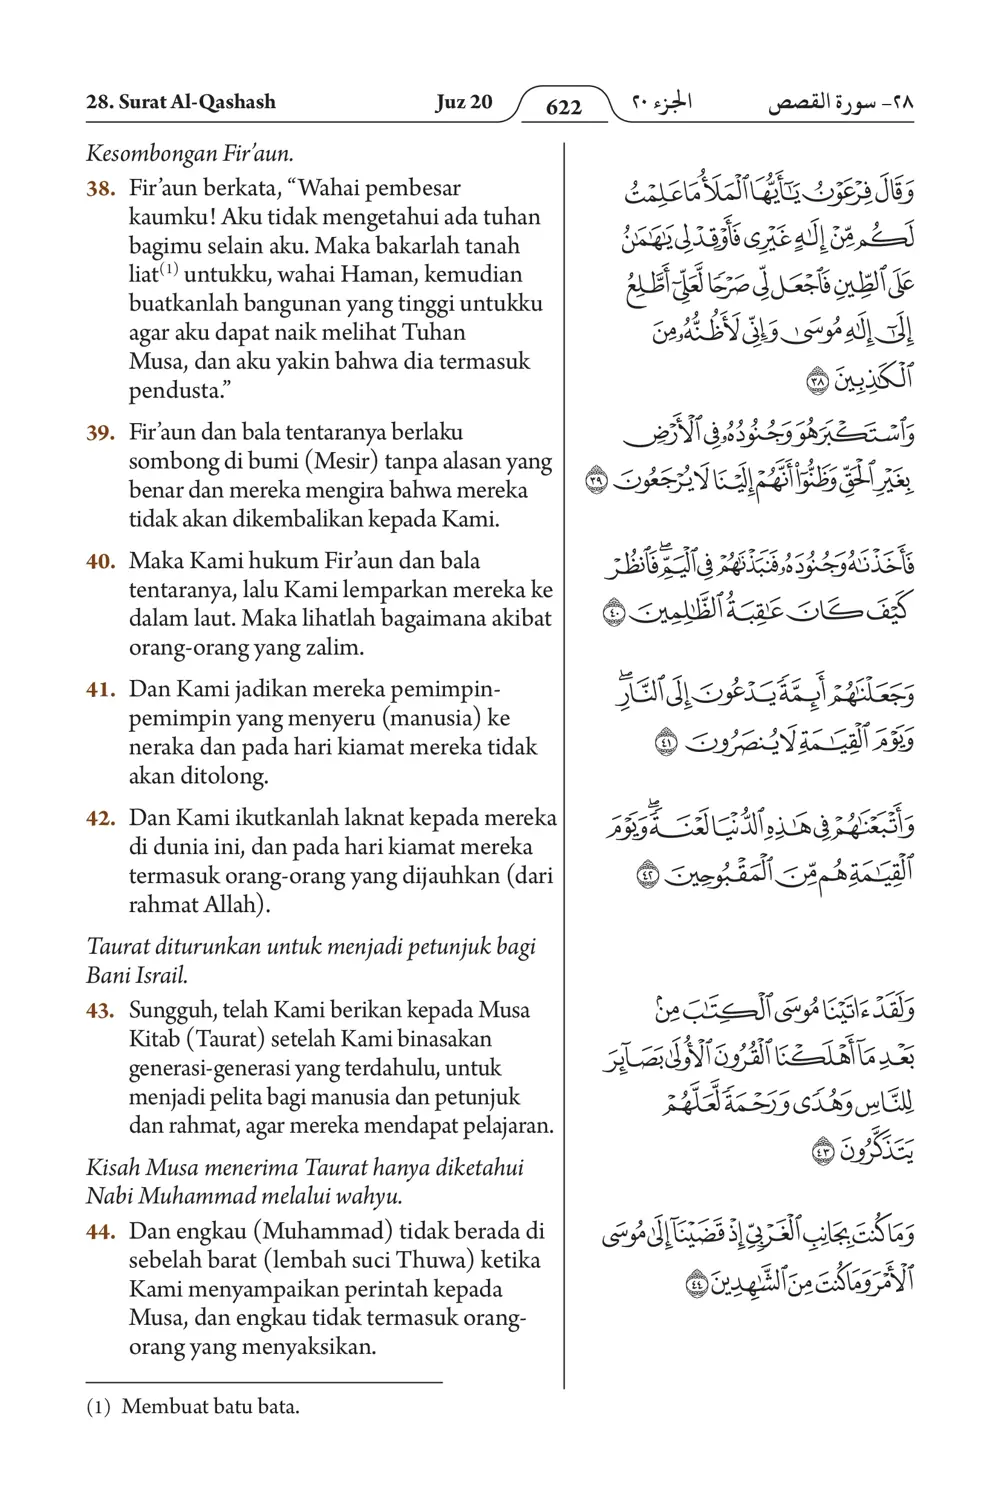 28. Surat Al-Qashash Juz 20 622 الجزء ٢٠ ٢٨- سورة القصص
Kesombongan Fir’aun.
38. Fir’aun berkata, “Wahai pembesar
kaumku! Aku tidak mengetahui ada tuhan
bagimu selain aku. Maka bakarlah tanah
liat(1) untukku, wahai Haman, kemudian
buatkanlah bangunan yang tinggi untukku
agar aku dapat naik melihat Tuhan
Musa, dan aku yakin bahwa dia termasuk
pendusta.”
39. Fir’aun dan bala tentaranya berlaku
sombong di bumi (Mesir) tanpa alasan yang
benar dan mereka mengira bahwa mereka
tidak akan dikembalikan kepada Kami.
40. Maka Kami hukum Fir’aun dan bala
tentaranya, lalu Kami lemparkan mereka ke
dalam laut. Maka lihatlah bagaimana akibat
orang-orang yang zalim.
41. Dan Kami jadikan mereka pemimpin-
pemimpin yang menyeru (manusia) ke
neraka dan pada hari kiamat mereka tidak
akan ditolong.
42. Dan Kami ikutkanlah laknat kepada mereka
di dunia ini, dan pada hari kiamat mereka
termasuk orang-orang yang dijauhkan (dari
rahmat Allah).
Taurat diturunkan untuk menjadi petunjuk bagi
Bani Israil.
43. Sungguh, telah Kami berikan kepada Musa
Kitab (Taurat) setelah Kami binasakan
generasi-generasi yang terdahulu, untuk
menjadi pelita bagi manusia dan petunjuk
dan rahmat, agar mereka mendapat pelajaran.
Kisah Musa menerima Taurat hanya diketahui
Nabi Muhammad melalui wahyu.
44. Dan engkau (Muhammad) tidak berada di
sebelah barat (lembah suci Thuwa) ketika
Kami menyampaikan perintah kepada
Musa, dan engkau tidak termasuk orang-
orang yang menyaksikan.
(1) Membuat batu bata.
وَقَالَ فِرْعَوْنُ يَٰٓأَيُّهَا ٱلْمَلَأُ مَا عَلِمْتُ
لَكُم مِّنْ إِلَٰهٍ غَيْرِى فَأَوْقِدْ لِى يَٰهَٰمَٰنُ
عَلَى ٱلطِّينِ فَٱجْعَل لِّى صَرْحًا لَّعَلِّىٓ أَطَّلِعُ
إِلَىٰٓ إِلَٰهِ مُوسَىٰ وَإِنِّى لَأَظُنُّهُۥ مِنَ
ٱلْكَٰذِبِينَ ٣٨
وَٱسْتَكْبَرَ هُوَ وَجُنُودُهُۥ فِى ٱلْأَرْضِ
بِغَيْرِ ٱلْحَقِّ وَظَنُّوٓا۟ أَنَّهُمْ إِلَيْنَا لَا يُرْجَعُونَ ٣٩
فَأَخَذْنَٰهُ وَجُنُودَهُۥ فَنَبَذْنَٰهُمْ فِى ٱلْيَمِّ ۖ فَٱنظُرْ
كَيْفَ كَانَ عَٰقِبَةُ ٱلظَّٰلِمِينَ ٤٠
وَجَعَلْنَٰهُمْ أَئِمَّةً يَدْعُونَ إِلَى ٱلنَّارِ ۖ
وَيَوْمَ ٱلْقِيَٰمَةِ لَا يُنصَرُونَ ٤١
وَأَتْبَعْنَٰهُمْ فِى هَٰذِهِ ٱلدُّنْيَا لَعْنَةً ۖ وَيَوْمَ
ٱلْقِيَٰمَةِ هُم مِّنَ ٱلْمَقْبُوحِينَ ٤٢
وَلَقَدْ ءَاتَيْنَا مُوسَى ٱلْكِتَٰبَ مِنۢ
بَعْدِ مَآ أَهْلَكْنَا ٱلْقُرُونَ ٱلْأُولَىٰ بَصَآئِرَ
لِلنَّاسِ وَهُدًى وَرَحْمَةً لَّعَلَّهُمْ
يَتَذَكَّرُونَ ٤٣
وَمَا كُنتَ بِجَانِبِ ٱلْغَرْبِىِّ إِذْ قَضَيْنَآ إِلَىٰ مُوسَى
ٱلْأَمْرَ وَمَا كُنتَ مِنَ ٱلشَّٰهِدِينَ ٤٤